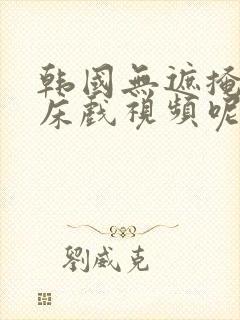 韩國無遮掩
床戲視頻呢
劉威克